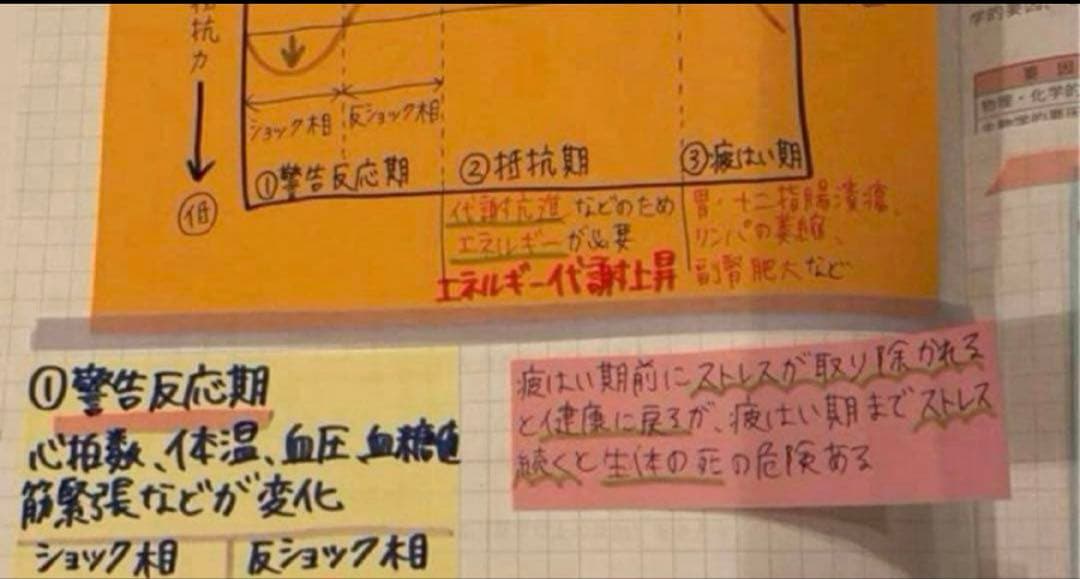 抗
力
低
ショック相
反ショック相
①警告反応期
②抵抗期
③疲はい期
代謝亢進などのため
エネルギーが必要
エネルギー代謝上昇
胃・十二指腸潰瘍、
リンパの萎縮、
副腎肥大など
学的要因、
要因
物理・化学的
①警告反応期
心拍数、体温、血圧、血糖値
筋緊張などが変化
ショック相
反ショック相
疲はい期前にストレスが取り除かれる
と健康に戻るが、疲はい期までストレス
続くと生体の死の危険ある